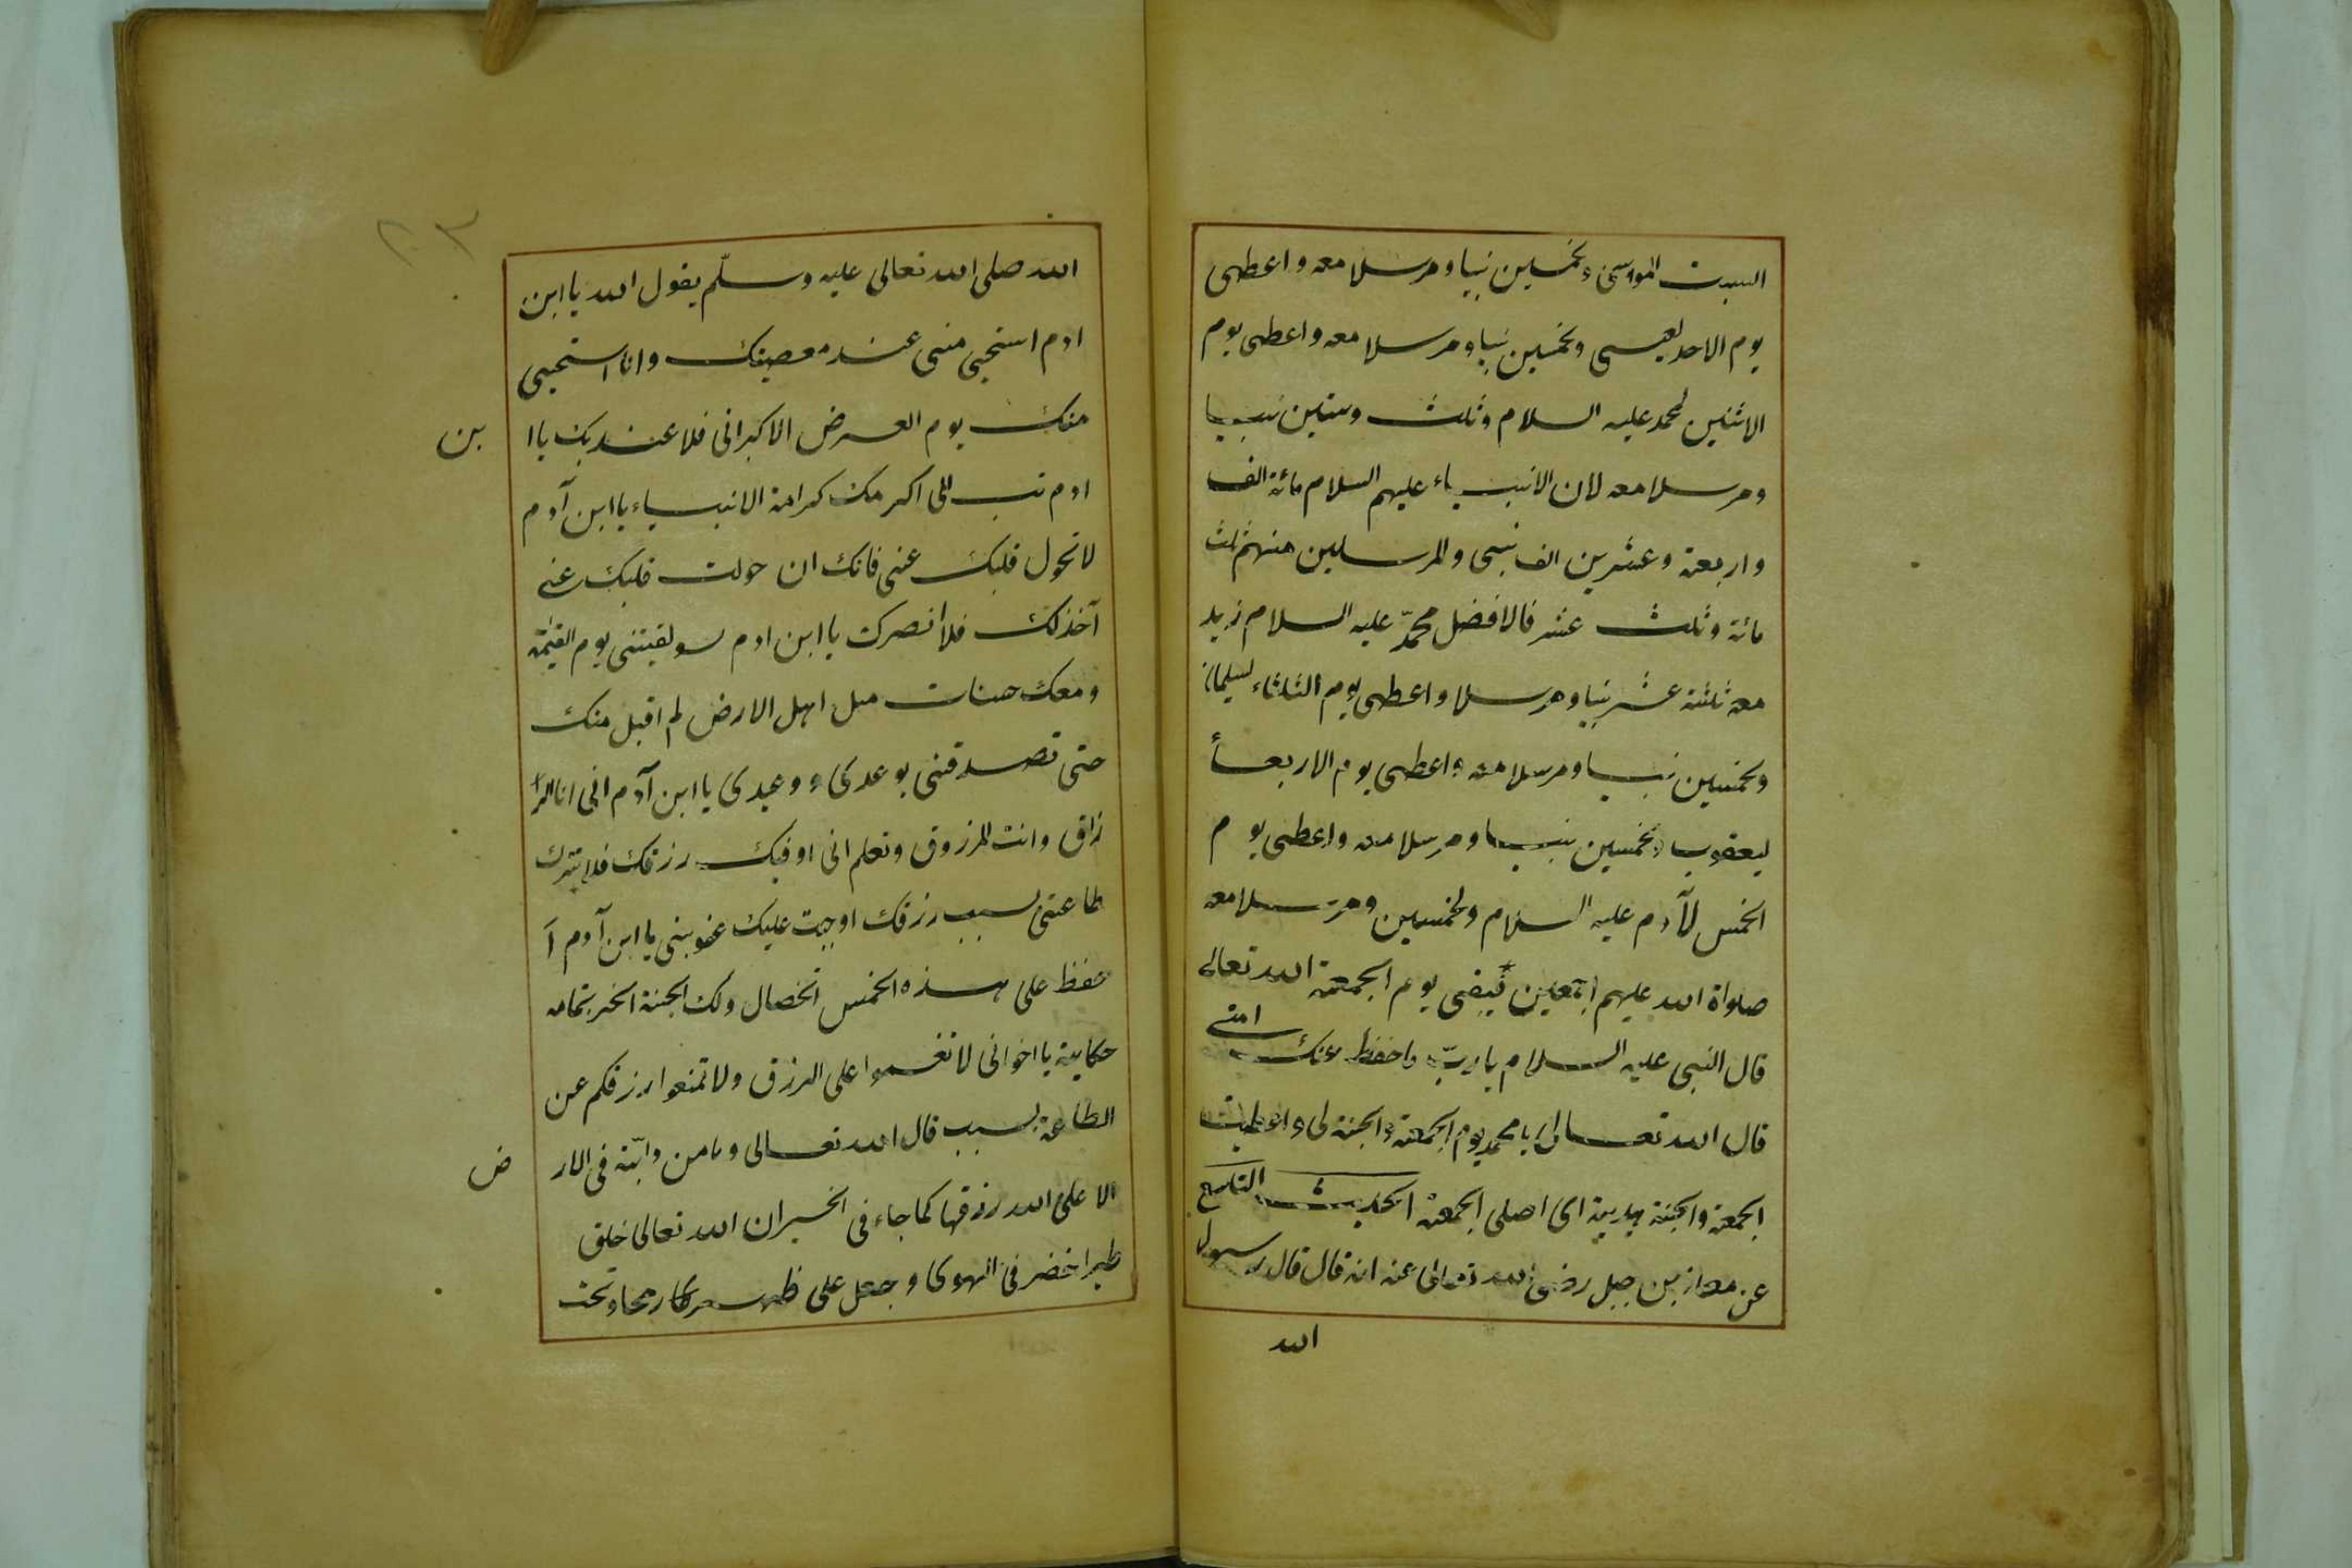 السبت لموسى ولخمسين نبيا ومرسلا معه واعطى
يوم الاحد لعيسى ولخمسين نبيا ومرسلا معه واعطى يوم
الاثنين لمحمد عليه السلام وثلث وستين نبيا
ومرسلا معه لان الانبياء عليهم السلام مائة الف
واربعة وعشرين الف نبى والمرسلين منهم ثلث
مائة وثلث عشر فالافضل محمّد عليه السلام زيد
معه ثلثة عشر نبيا ومرسلا واعطى يوم الثلثاء لسليمان
ولخمسين نبيا ومرسلا معه واعطى يوم الاربعأ
ليعقوب ولخمسين نبيا ومرسلا معه واعطى يوم
الخمس لآدم عليه السلام ولخمسين ومرسلا معه
صلواة الله عليهم اجمعين فبقى يوم الجمعة الله تعالى
قال النبى عليه السلام يا ربّ واحفظ عنك امتى
قال الله تعالى يا محمد يوم الجمعة والجنة لى واعطيت
الجمعة والجنة هدية اى اصلى الجمعة الحديث التاسع
عن معاز بن جبل رضى الله تعالى عنه انه قال قال رسول
الله
٢٠٣
الله صلى الله تعالى عليه وسلّم يقول الله يا ابن
ادم استحيى منى عند معصيتك وانا استحيى
منك يوم العرض الاكبر انى فلا عنديك يا ا
بن
ادم تب الى اكرمك كرامة الانبياء يا ابن آدم
لا تحول قلبك عنى فانك ان حولت قلبك عنى
آخذلك فلا انصرك يا ابن ادم لو لقيتنى يوم القيمة
ومعك حسنات مل اهل الارض لم اقبل منك
حتى تصدقنى بوعدى ووعيدى يا ابن آدم انى انا الر
زاق وانت المرزوق وتعلم انى اوفيك رزقك فلا تترك
طاعتى بسبب رزقك اوجبت عليك عقوبتى يا ابن آدم ا
حفظ على هذه الخمس الخصال ولك الجنة الخبر بتمامه
حكاية يا اخوانى لا تغموا على الرزق ولا تمنعوا رزقكم عن
الطاعة بسبب قال الله تعالى وما من دابّة فى الار
ض
الا على الله رزقها كما جاء فى الخبر ان الله تعالى خلق
طيرا خضر فى الهوى وجعل على ظهره رمحا وتحت